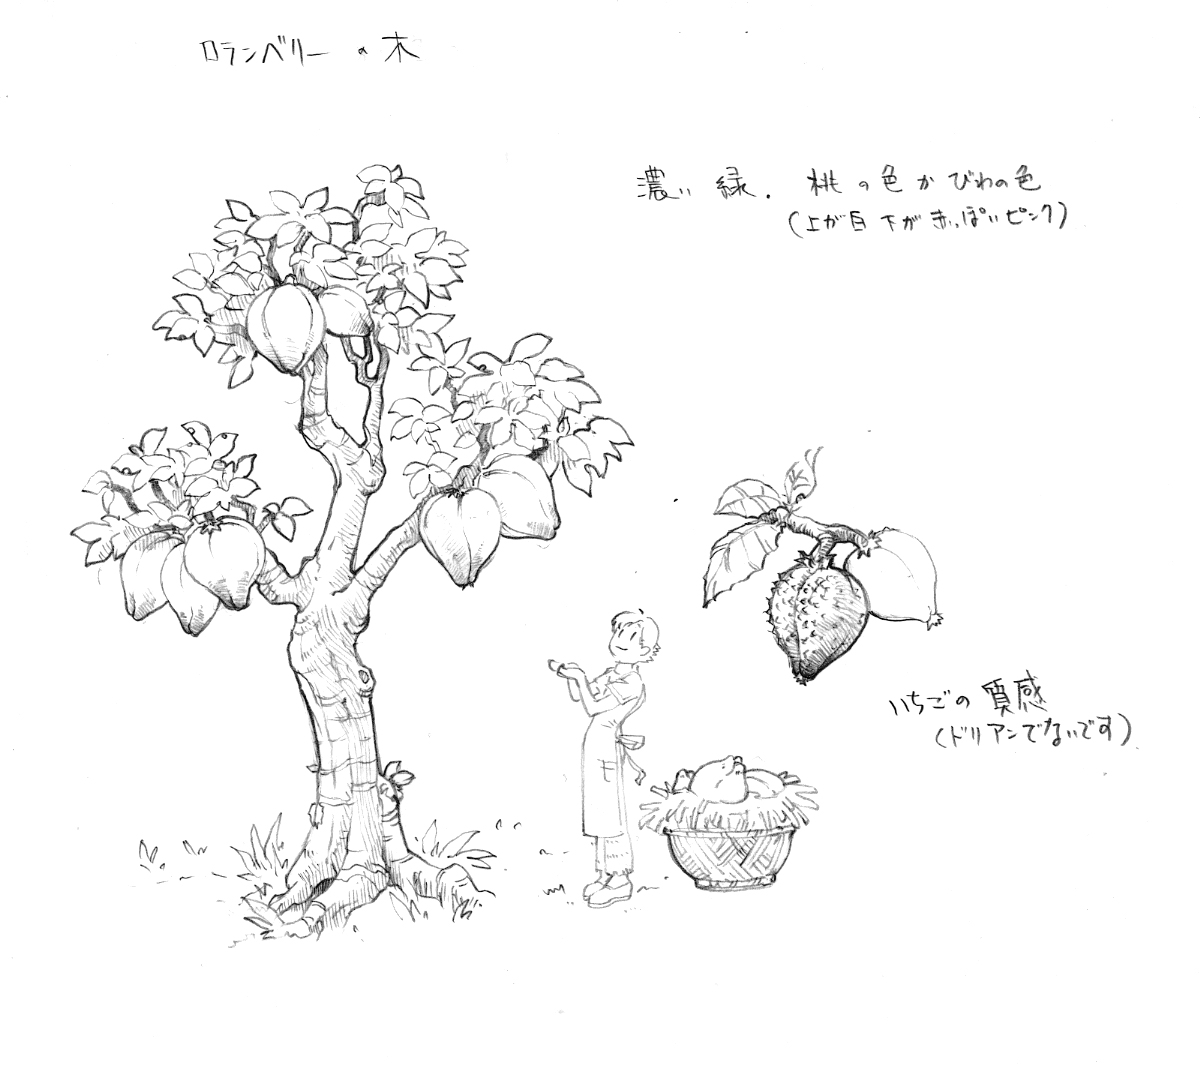 ロランベリーの木
濃い緑. 桃の色かびわの色
(上が白 下が赤っぽいピンク)
いちごの質感
(ドリアンでないです)